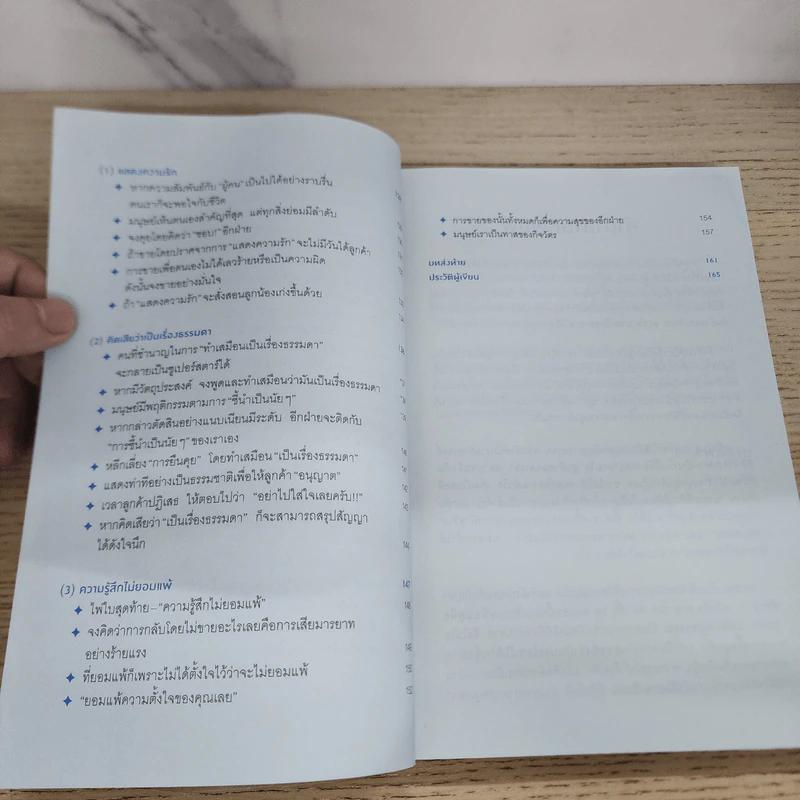 (1) แสดงความรัก
✦ หากความสัมพันธ์กับ "ผู้คน" เป็นไปได้อย่างราบรื่น
คนเราก็จะพอใจกับชีวิต
✦ มนุษย์เห็นตนเองสำคัญที่สุด แต่ทุกสิ่งย่อมมีลำดับ
✦ จงคุยโดยคิดว่า "ชอบ!" อีกฝ่าย
✦ ถ้าขายโดยปราศจากการ "แสดงความรัก" จะไม่มีวันได้ลูกค้า
✦ การขายเพื่อตนเองไม่ได้เลวร้ายหรือเป็นความผิด
ดังนั้นจงขายอย่างมั่นใจ
✦ ถ้า "แสดงความรัก" จะสั่งสอนลูกน้องเก่งขึ้นด้วย
(2) คิดเสียว่าเป็นเรื่องธรรมดา
✦ คนที่ชำนาญในการ "ทำเสมือนเป็นเรื่องธรรมดา"
จะกลายเป็นซูเปอร์สตาร์ได้
✦ หากมีวัตถุประสงค์ จงพูดและทำเสมือนว่ามันเป็นเรื่องธรรมดา
✦ มนุษย์มีพฤติกรรมตามการ "ชี้นำเป็นนัยๆ"
✦ หากกล่าวตัดสินอย่างแนบเนียนมีระดับ อีกฝ่ายจะติดกับ
"การชี้นำเป็นนัยๆ" ของเราเอง
✦ หลีกเลี่ยง "การยืนคุย" โดยทำเสมือน "เป็นเรื่องธรรมดา" 141
✦ แสดงท่าทีอย่างเป็นธรรมชาติเพื่อให้ลูกค้า "อนุญาต" 142
✦ เวลาลูกค้าปฏิเสธ ให้ตอบไปว่า "อย่าไปใส่ใจเลยครับ!!" 143
✦ หากคิดเสียว่า "เป็นเรื่องธรรมดา" ก็จะสามารถสรุปสัญญา
ได้ดังใจนึก 144
(3) ความรู้สึกไม่ยอมแพ้ 147
✦ ไพ่ใบสุดท้าย – "ความรู้สึกไม่ยอมแพ้" 148
✦ จงคิดว่าการกลับโดยไม่ขายอะไรเลยคือการเสียมารยาท
อย่างร้ายแรง
✦ ที่ยอมแพ้ก็เพราะไม่ได้ตั้งใจไว้ว่าจะไม่ยอมแพ้
✦ "ยอมแพ้ความตั้งใจของคุณเลย"
✦ การขายของนั้นทั้งหมดก็เพื่อความสุขของอีกฝ่าย 154
✦ มนุษย์เราเป็นทาสของกิจวัตร 157
บทส่งท้าย 161
ประวัติผู้เขียน 165